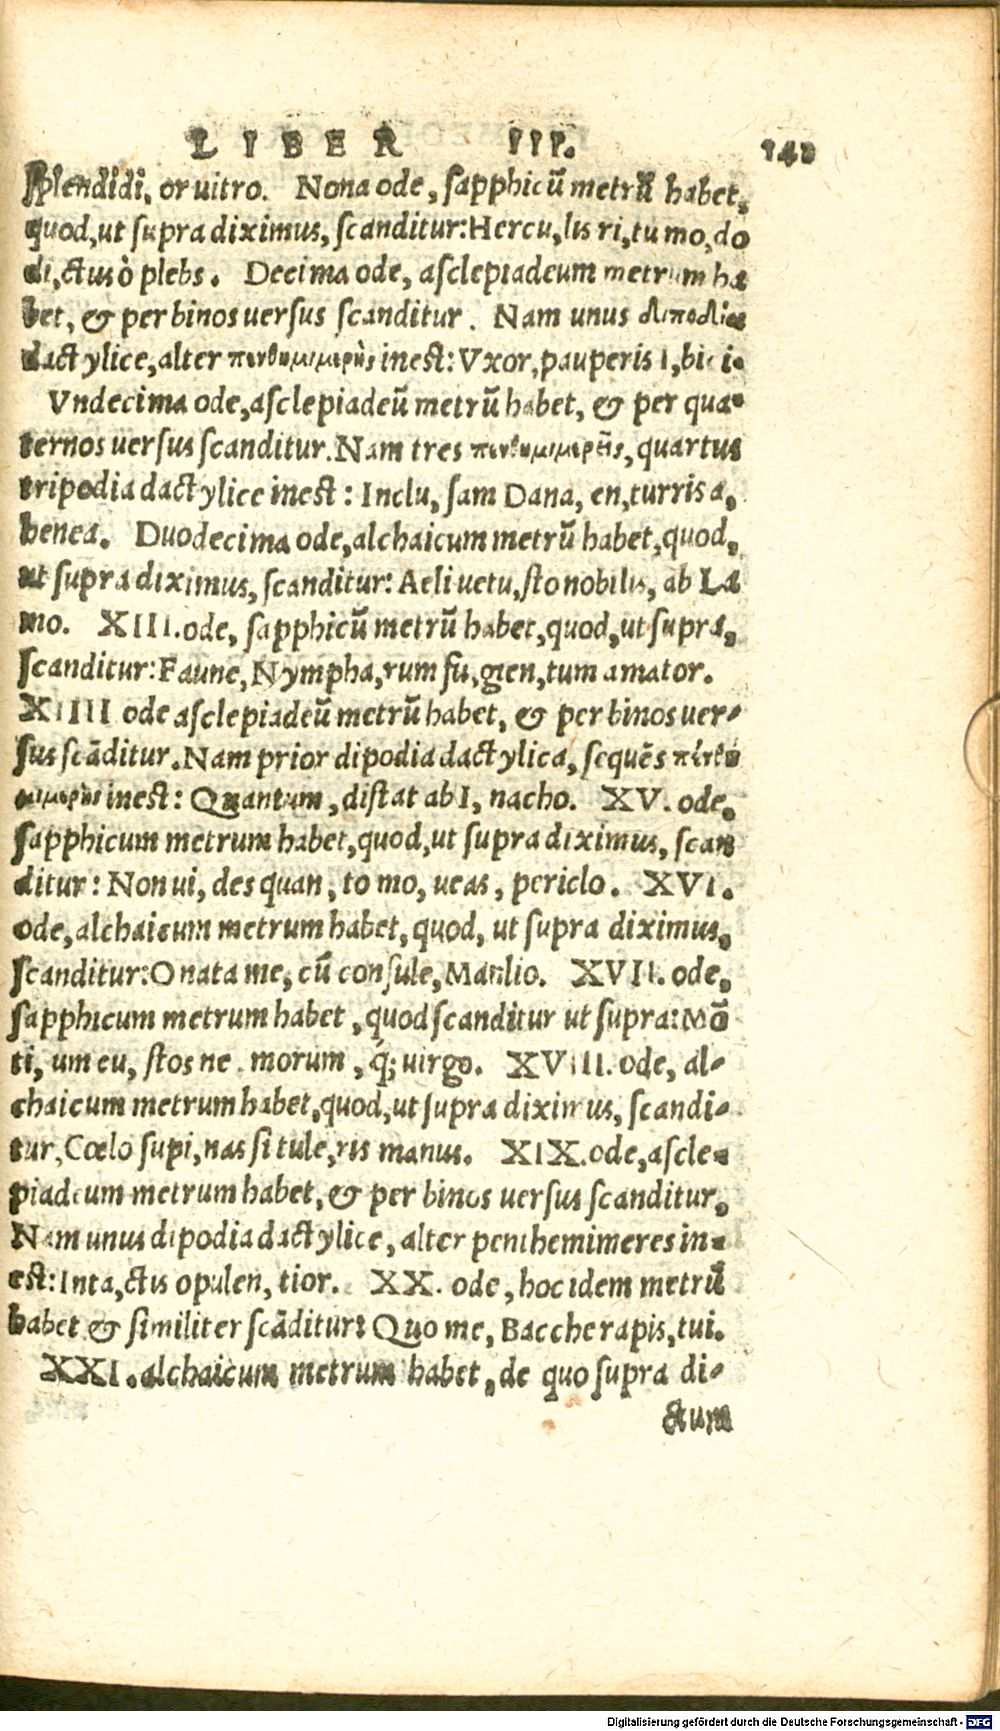 LIBER III.
ſplendidi, or uitro. Nona ode, ſapphicū metrū habet,
quod, ut ſupra diximus, ſcanditur: Hercu, lis ri, tu mo, do
di, ctus ò plebs. Decima ode, aſclepiadeum metrum ha
bet, & per binos uerſus ſcanditur. Nam unus διποδίας
dactylice, alter πενθημιμερὴς ineſt: Vxor, pauperis I, bici.
Vndecima ode, aſclepiadeū metrū habet, & per qua-
ternos uerſus ſcanditur. Nam tres πενθημιμερεῖς, quartus
tripodia dactylice ineſt: Inclu, ſam Dana, en, turris a,
henea. Duodecima ode, alchaicum metrū habet, quod,
ut ſupra diximus, ſcanditur: Aeli uetu, ſto nobilis, ab La
mo. XIII. ode, ſapphicū metrū habet, quod, ut ſupra,
ſcanditur: Faune, Nympha, rum fu, gien, tum amator.
XIIII ode aſclepiadeū metrū habet, & per binos uer-
ſus ſcāditur. Nam prior dipodia dactylica, ſequēs πένθη
μιμερὴς ineſt: Quantum, diſtat ab I, nacho. XV. ode,
ſapphicum metrum habet, quod, ut ſupra diximus, ſcan
ditur: Non ui, des quan, to mo, ueas, periclo. XVI.
ode, alchaicum metrum habet, quod, ut ſupra diximus,
ſcanditur: O nata me, cū conſule, Manlio. XVII. ode,
ſapphicum metrum habet, quod ſcanditur ut ſupra: Mō
ti, um cu, ſtos ne, morum, q́; uirgo. XVIII. ode, al-
chaicum metrum habet, quod, ut ſupra diximus, ſcandi-
tur, Cœlo ſupi, nas ſi tule, ris manus. XIX. ode, aſcle-
piadeum metrum habet, & per binos uerſus ſcanditur,
Nam unus dipodia dactylice, alter penthemimeres in-
eſt: Inta, ctis opulen, tior. XX. ode, hoc idem metrū
habet & ſimiliter ſcāditur: Quo me, Bacche rapis, tui.
XXI. alchaicum metrum habet, de quo ſupra di-
ctum
Digitalisierung gefördert durch die Deutsche Forschungsgemeinschaft - DFG